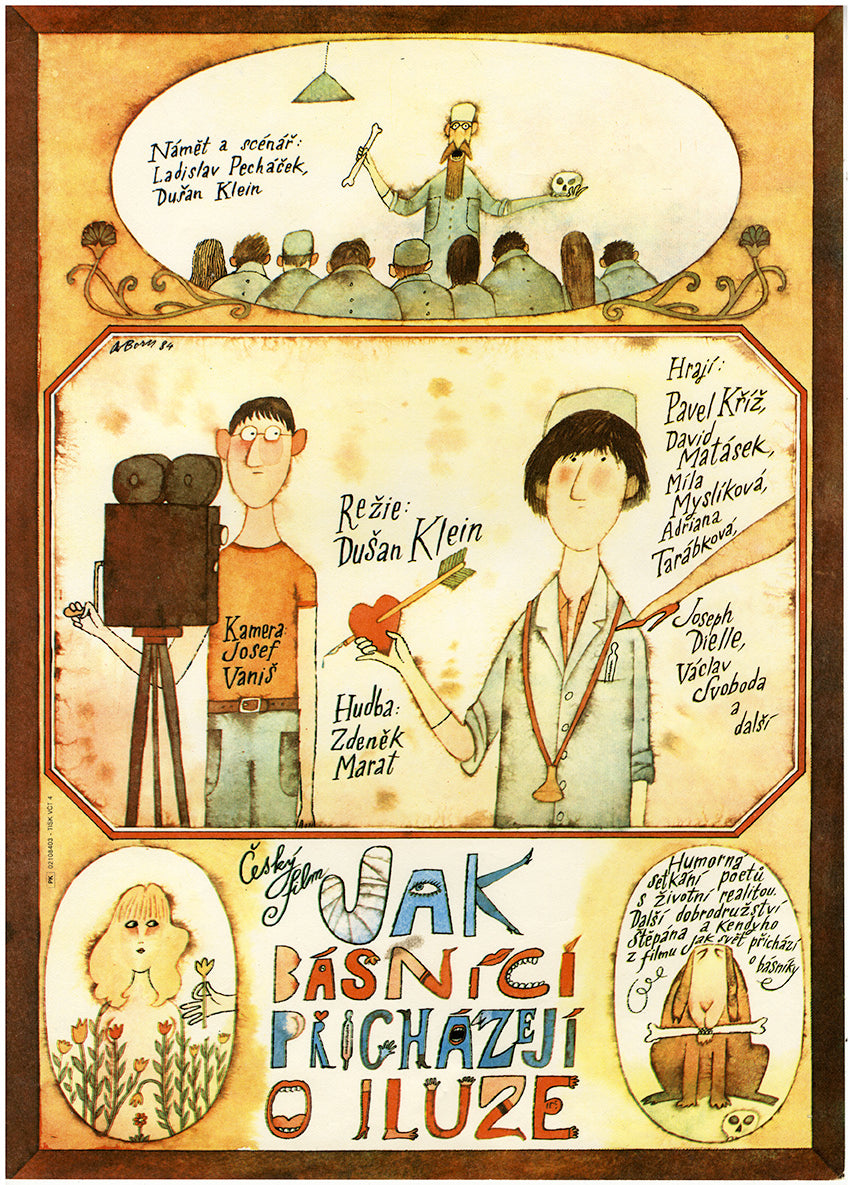 Námět a scénář:
Ladislav Pecháček,
Dušan Klein
ABorn 84
Hrají:
Pavel Kříž,
David
Matásek,
Míla
Myslíková,
Adriana
Tarábková,
Joseph
Dielle,
Václav
Svoboda
a
další
Režie:
Dušan Klein
Kamera
Josef
Vaniš
Hudba:
Zdeněk
Marat
PK 02108403 - TISK VČT 4
Český
film
JAK
BÁSNÍCI
PŘICHÁZEJÍ
O ILUZE
Humorná
setkání poetů
s životní realitou.
Další dobrodružství
Štěpána a Kendyho
z filmu Jak svět přichází
o básníky